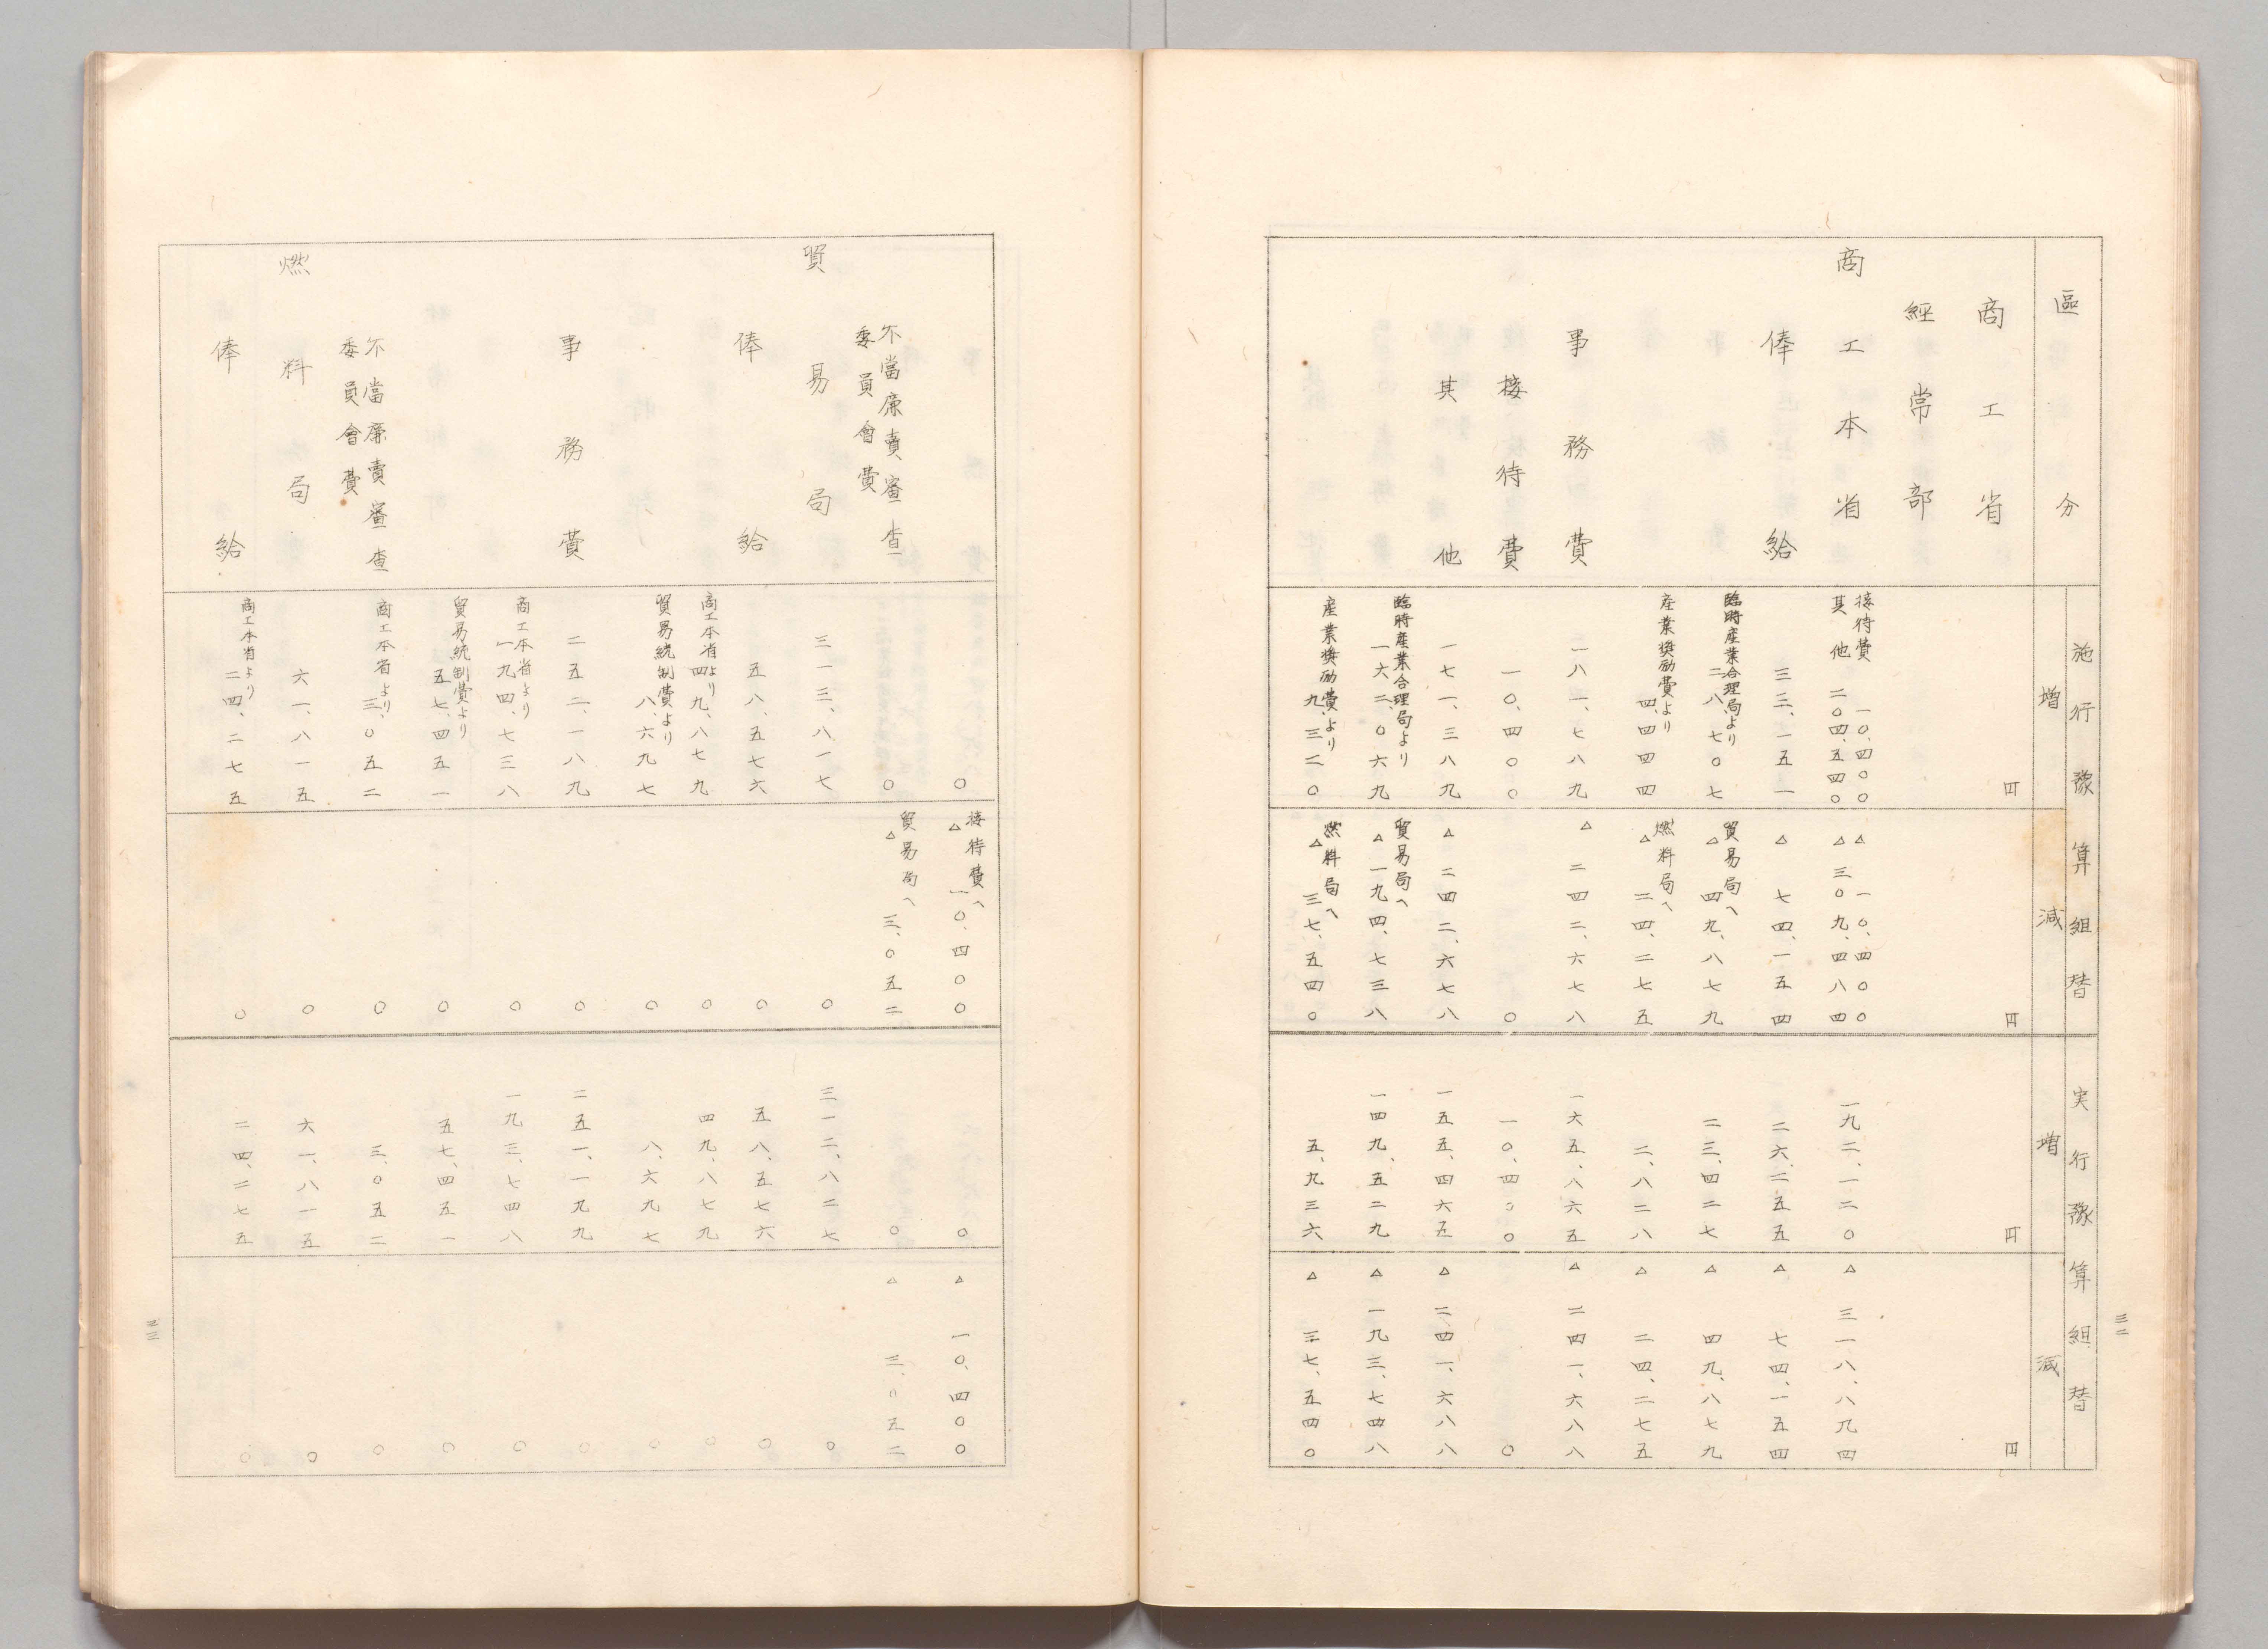 三二
區分 施行豫算組替 実行豫算組替
增 減 增 減
商工省 円 円 円 円
經常部
商工本省 接待費 一〇、四〇〇 △一〇、四〇〇
其他 二〇四、五四〇 △三〇九、四八四 一九二、一二〇 △三一八、八九四
俸給 三三、一五一 △七四、一五四 二六、二五五 △七四、一五四
臨時産業合理局より 貿易局へ
二八、七〇七 △四九、八七九 二三、四二七 △四九、八七九
産業奬励費より 燃料局へ
四、四四四 △二四、二七五 二、八二八 △二四、二七五
事務費 一八一、七八九 △二四二、六七八 一六五、八六五 △二四一、六八八
接待費 一〇、四〇〇 〇 一〇、四〇〇 〇
其他 一七一、三八九 △二四二、六七八 一五五、四六五 △二四一、六八八
臨時産業合理局より 貿易局へ
一六二、〇六九 △一九四、七三八 一四九、五二九 △一九三、七四八
産業奬励費より 燃料局へ
九、三二〇 △三七、五四〇 五、九三六 △三七、五四〇
接待費へ
〇 △一〇、四〇〇 〇 △一〇、四〇〇
不當廉賣審査 貿易局へ
委員會費 〇 △三、〇五二 〇 △三、〇五二
貿易局 三一三、八一七 〇 三一二、八二七 〇
俸給 五八、五七六 〇 五八、五七六 〇
商工本省より
四九、八七九 〇 四九、八七九 〇
貿易統制費より
八、六九七 〇 八、六九七 〇
事務費 二五二、一八九 〇 二五一、一九九 〇
商工本省より
一九四、七三八 〇 一九三、七四八 〇
貿易統制費より
五七、四五一 〇 五七、四五一 〇
不當廉賣審査 商工本省より
委員會費 三、〇五二 〇 三、〇五二 〇
燃料局 六一、八一五 〇 六一、八一五 〇
商工本省より
俸給 二四、二七五 〇 二四、二七五 〇
三三